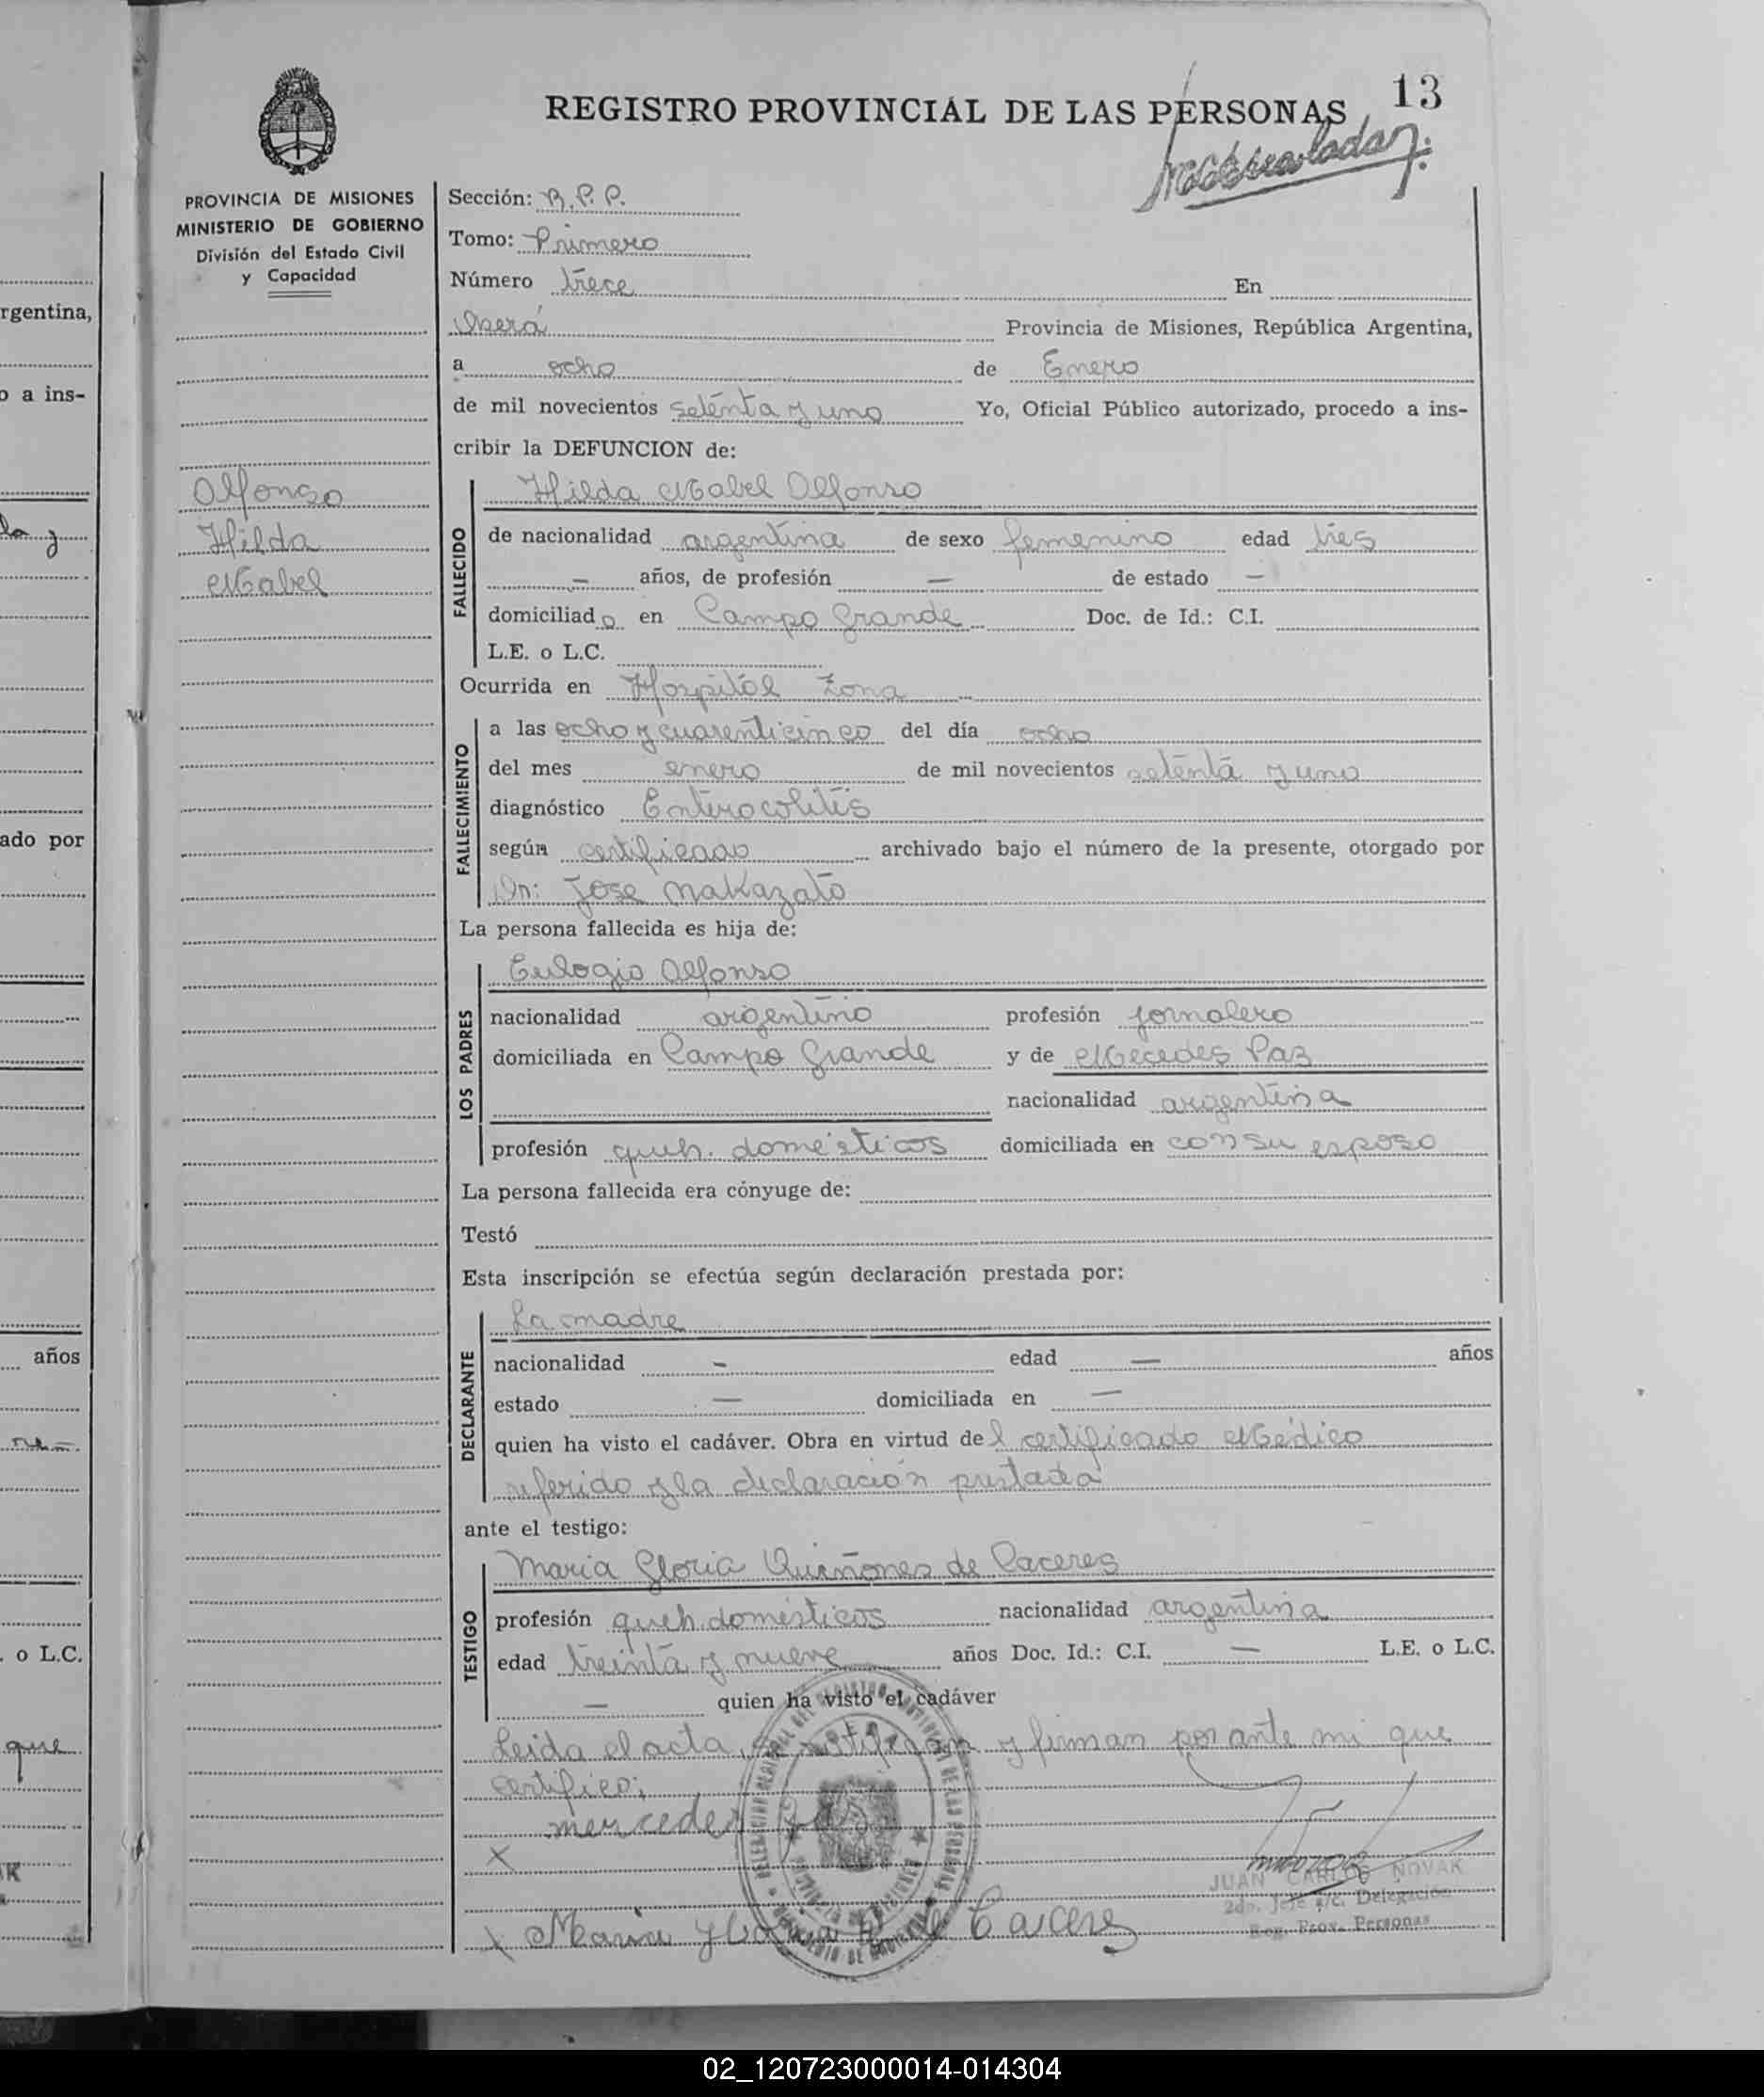 13
REGISTRO PROVINCIAL DE LAS PERSONAS
PROVINCIA DE MISIONES
MINISTERIO DE GOBIERNO
División del Estado Civil
y Capacidad
Alfonso
Hilda
Mabel
Sección: R.P.P.
Tomo: Primero
Número trece En
Oberá Provincia de Misiones, República Argentina,
a ocho de Enero
de mil novecientos setenta y uno Yo, Oficial Público autorizado, procedo a ins-
cribir la DEFUNCION de:
FALLECIDO
Hilda Mabel Alfonso
de nacionalidad argentina de sexo femenino edad tres
— años, de profesión — de estado —
domiciliado en Campo Grande Doc. de Id.: C.I.
L.E. o L.C.
Ocurrida en Hospital Zona
FALLECIMIENTO
a las ocho y cuarenticinco del día ocho
del mes enero de mil novecientos setenta y uno
diagnóstico Enterocolitis
según certificado archivado bajo el número de la presente, otorgado por
Dr: Jose Makazato
La persona fallecida es hija de:
LOS PADRES
Eulogio Alfonso
nacionalidad argentino profesión jornalero
domiciliada en Campo Grande y de Mecedes Paz
nacionalidad argentina
profesión queh. domésticos domiciliada en con su esposo
La persona fallecida era cónyuge de:
Testó
Esta inscripción se efectúa según declaración prestada por:
DECLARANTE
La madre
nacionalidad — edad — años
estado — domiciliada en —
quien ha visto el cadáver. Obra en virtud del certificado Médico
referido y la declaración prestada
ante el testigo:
TESTIGO
Maria Gloria Quiñones de Caceres
profesión queh. domésticos nacionalidad argentina
edad treinta y nueve años Doc. Id.: C.I. — L.E. o L.C.
— quien ha visto el cadáver
Leida el acta, se ratifican y firman por ante mi que
certifico;
mercedes Paz
X
JUAN CARLOS NOVAK
2do. Jefe a/c. Delegación
Reg. Prov. Personas
X Maria Gloria Q de Caceres
rgentina,
o a ins-
ado por
años
que
. o L.C.
02_120723000014-014304